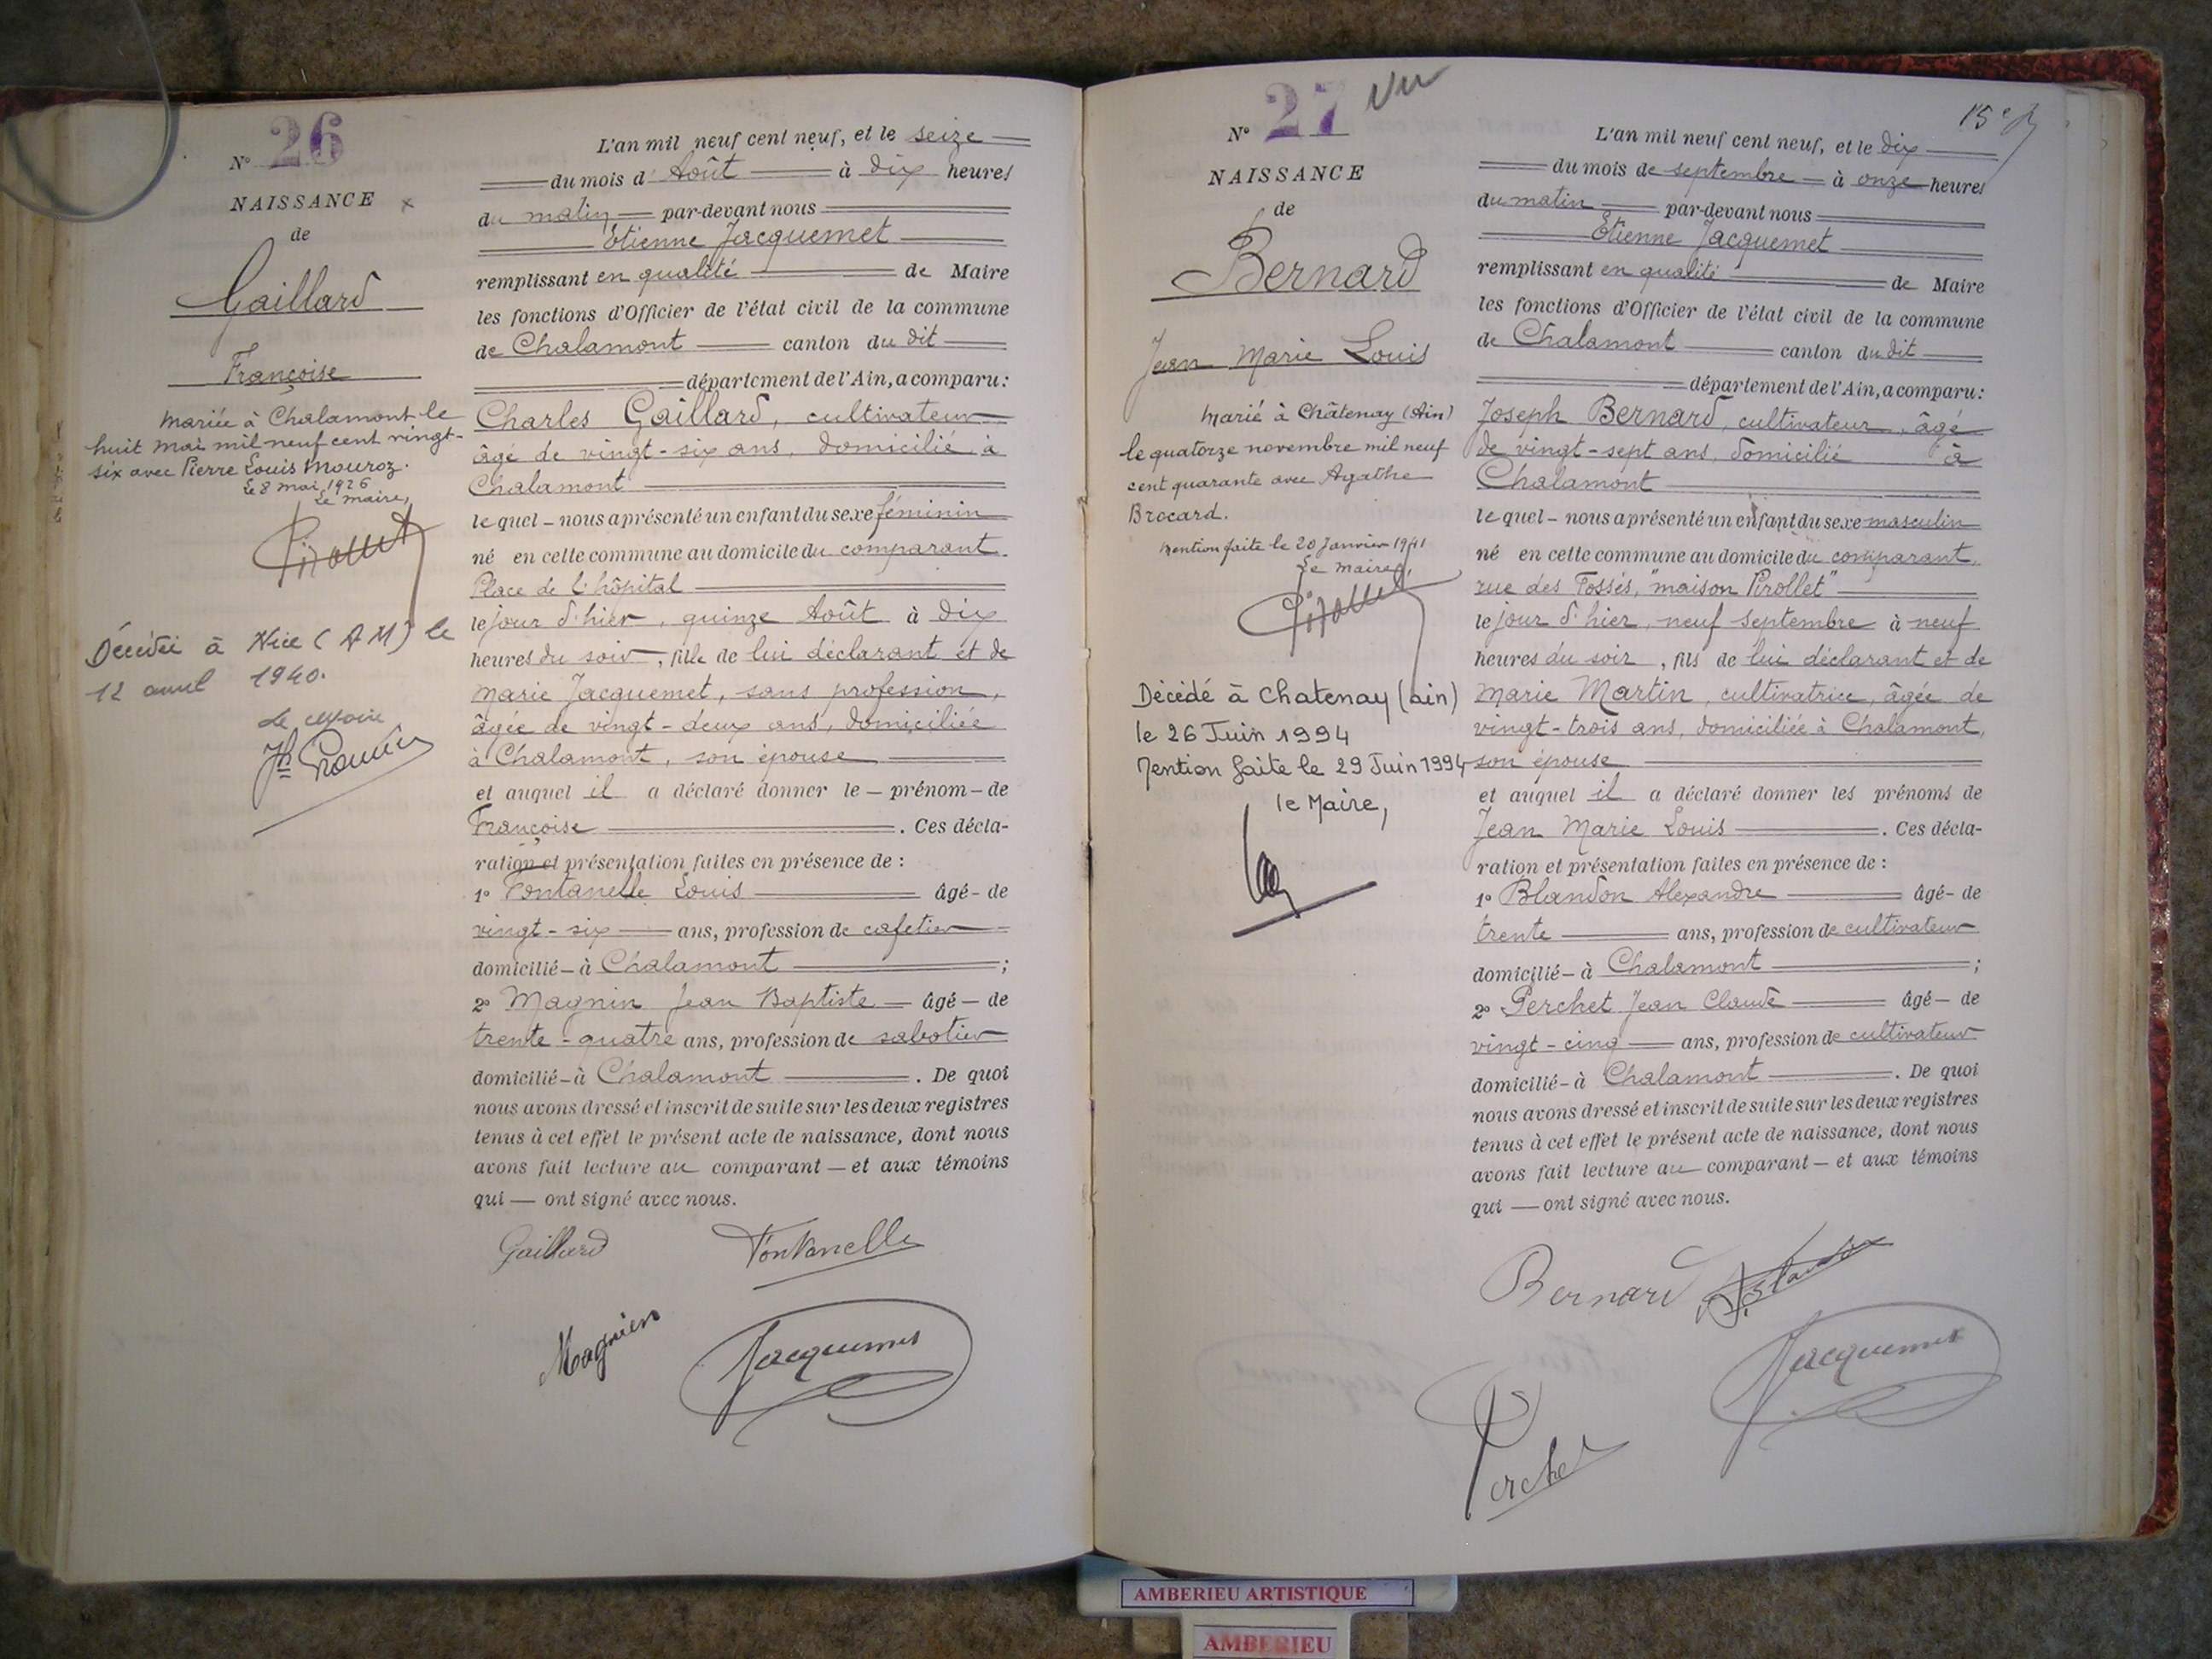 N° 26
NAISSANCE
de
Gaillard
Françoise
Mariée à Chalamont le
huit mai mil neuf cent vingt-
six avec Pierre Louis Mouroz.
Le 8 mai 1926
Le maire,
Décédée à Nice (AM) le
12 avril 1940.
Le Maire
L'an mil neuf cent neuf, et le seize
du mois d'Août à dix heures
du matin par-devant nous
Etienne Jacquemet
remplissant en qualité de Maire
les fonctions d'Officier de l'état civil de la commune
de Chalamont canton du dit
département de l'Ain, a comparu:
Charles Gaillard, cultivateur
âgé de vingt-six ans, domicilié à
Chalamont
lequel - nous a présenté un enfant du sexe féminin
né en cette commune au domicile du comparant.
Place de l'hôpital
le jour d'hier, quinze Août à dix
heures du soir, fille de lui déclarant et de
Marie Jacquemet, sans profession,
âgée de vingt-deux ans, domiciliée
à Chalamont, son épouse
et auquel il a déclaré donner le - prénom - de
Françoise. Ces décla-
ration et présentation faites en présence de :
1° Fontanelle Louis âgé - de
vingt-six ans, profession de cafetier
domicilié - à Chalamont ;
2° Magnin Jean Baptiste âgé - de
trente-quatre ans, profession de sabotier
domicilié - à Chalamont. De quoi
nous avons dressé et inscrit de suite sur les deux registres
tenus à cet effet le présent acte de naissance, dont nous
avons fait lecture au comparant - et aux témoins
qui - ont signé avec nous.
Gaillard Fontanelle
Magnien Jacquemet
N° 27 Vu
NAISSANCE
de
Bernard
Jean Marie Louis
Marié à Châtenay (Ain)
le quatorze novembre mil neuf
cent quarante avec Agathe
Brocard.
Mention faite le 20 Janvier 1941
Le maire,
Décédé à Chatenay (ain)
le 26 Juin 1994
Mention faite le 29 Juin 1994
le Maire,
L'an mil neuf cent neuf, et le dix
du mois de septembre à onze heures
du matin par-devant nous
Etienne Jacquemet
remplissant en qualité de Maire
les fonctions d'Officier de l'état civil de la commune
de Chalamont canton du dit
département de l'Ain, a comparu:
Joseph Bernard, cultivateur, âgé
de vingt-sept ans, domicilié à
Chalamont
lequel - nous a présenté un enfant du sexe masculin
né en cette commune au domicile du comparant,
rue des Fossés, "maison Pirollet"
le jour d'hier, neuf septembre à neuf
heures du soir, fils de lui déclarant et de
Marie Martin, cultivatrice, âgée de
vingt-trois ans, domiciliée à Chalamont,
son épouse
et auquel il a déclaré donner les prénoms de
Jean Marie Louis. Ces décla-
ration et présentation faites en présence de :
1° Blandon Alexandre âgé - de
trente ans, profession de cultivateur
domicilié - à Chalamont ;
2° Perchet Jean Claude âgé - de
vingt-cinq ans, profession de cultivateur
domicilié - à Chalamont. De quoi
nous avons dressé et inscrit de suite sur les deux registres
tenus à cet effet le présent acte de naissance, dont nous
avons fait lecture au comparant - et aux témoins
qui - ont signé avec nous.
Bernard
Jacquemet
Perchet
AMBERIEU ARTISTIQUE
AMBERIEU